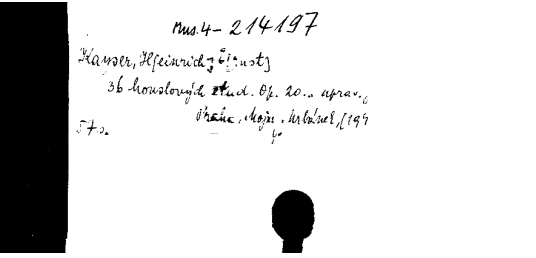 Mus.4-214197
Kayser, H[einrich] E[rnst]
36 houslových etud. Op. 20.. uprav.,
Praha, Mojm. Urbánek, [194
57 s.